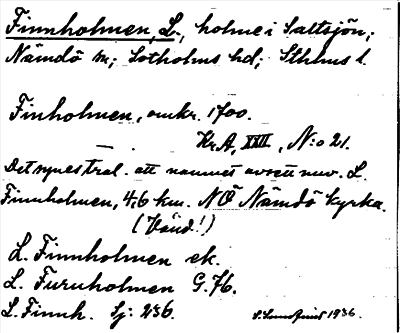 Finnholmen, L., holme i Saltsjön;
Nämdö sn; Sotholms hd; Sthlms l.
Finholmen, omkr. 1700.
Kr.A, XXIII, N:o 21.
Det synes tral. att namnet avsett nuv. L.
Finnholmen, 4,6 km. NÖ Nämdö kyrka.
(Vänd!)
L. Finnholmen ek.
L. Furuholmen G.76.
L. Finnh. Sj: 236.
1936.